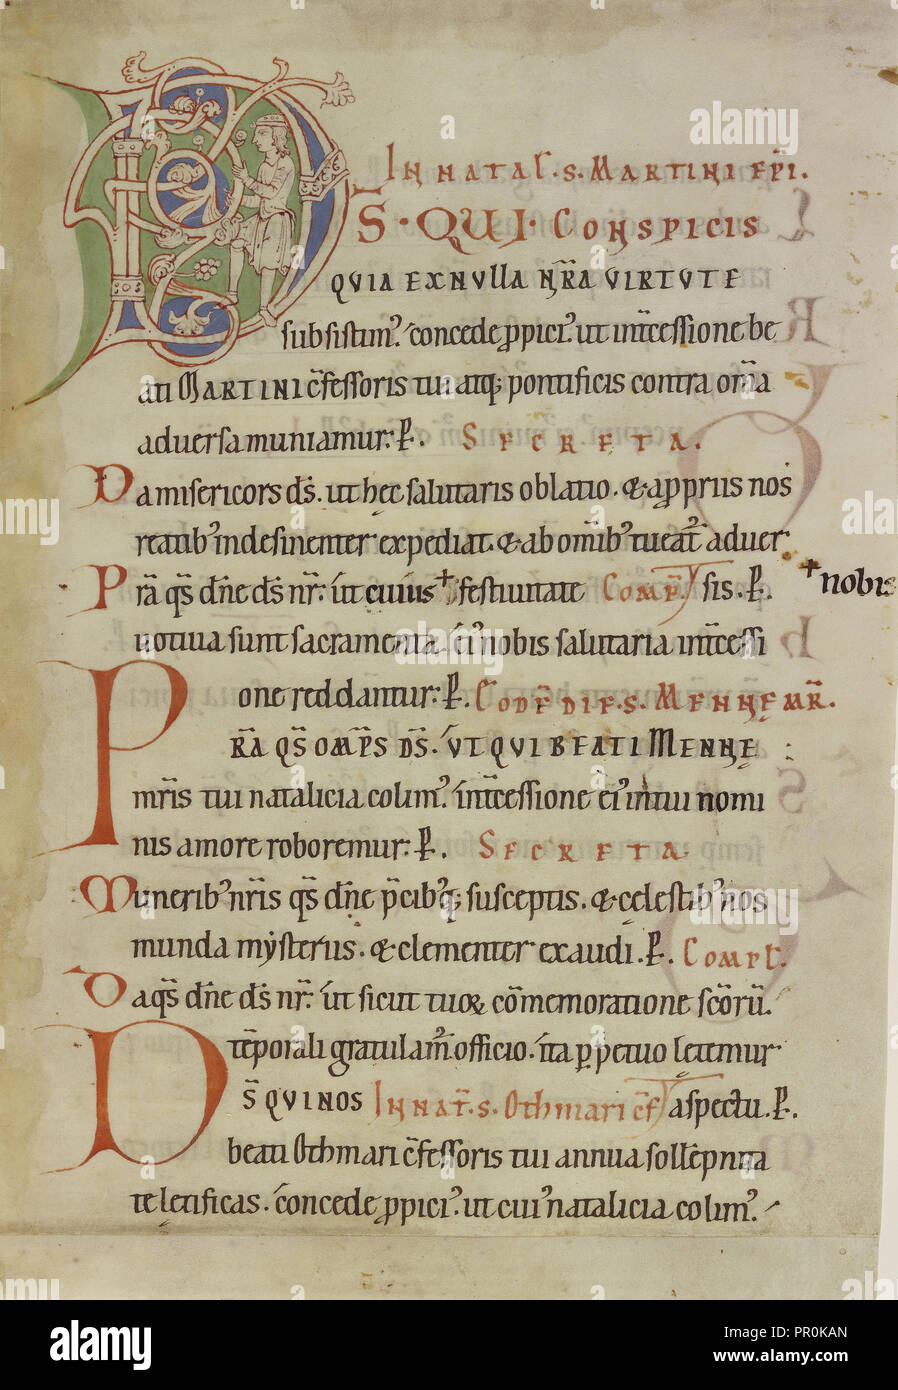 IN NATAƚ . S . MARTINI EP̄I .
DS · QUI · CONSPICIS
QUIA EX NULLA NR̄A VIRTUTE
subsistim᷒ . concede ꝓpici᷒ . ut int̄cessione be
ati MARTINI c̄fessoris tui atq; pontificis contra om̄a
aduersa muniamur : ꝑ . SECRETA .
Da misericors d̄s . ut hec salutaris oblatio . & a ꝓpriis nos
reatib᷒ indesinenter expediat . & ab om̄ib᷒ tueat᷒ aduer
Pr̄a q̄s dn̄e d̄s nr̄ : ut cuius + festiuitate COMP̄ƚ sis . ꝑ . + nobis
uotiua sunt sacramenta . ei᷒ nobis salutaria int̄cessi
one reddantur : ꝑ . EODĒ DIE . S . MENNE MR̄ .
PR̄A Q̄S OMP̄S D̄S . UT QUI BEATI MENNE
mr̄is tui natalicia colim᷒ . int̄cessione ei᷒ in tui nomi
nis amore roboremur : ꝑ . SECRETA
Munerib᷒ nr̄is q̄s dn̄e p̄cib᷒q; susceptis . & celestib᷒ nos
munda mysteriis . & clementer exaudi . ꝑ . COMPƚ .
Da q̄s dn̄e d̄s nr̄ . ut sicut tuoꝝ cōmemoratione sc̄orū .
tēporali gratulam᷒ officio . ita ꝑpetuo letemur
DS QUI NOS IN NAT̄ . S . Othmari c̄f aspectu . ꝑ .
beati Othmari c̄fessoris tui annua sollēpnita
te letificas . concede ꝓpici᷒ . ut cui᷒ natalicia colim᷒ .
alamy
alamy
Image ID: PR0KAN
www.alamy.com